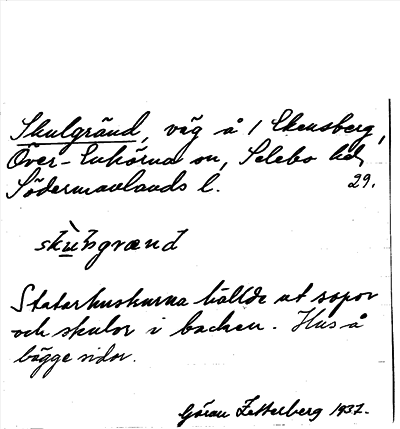 Skulgränd, väg å 1 Ekensberg,
Över-Enhörna sn, Selebo hd,
Södermanlands l. 29.
Statarhustrurna hällde ut sopor
och skulor i backen. Hus å
bägge sidor.
Göran Zetterberg 1937.